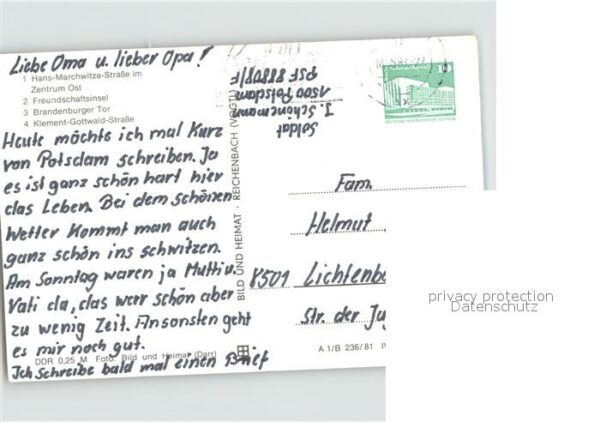 Liebe Oma u. lieber Opa!
1 Hans-Marchwitza-Straße im
Zentrum Ost
2 Freundschaftsinsel
3 Brandenburger Tor
4 Klement-Gottwald-Straße
Heute möchte ich mal Kurz
von Potsdam schreiben. Ja
es ist ganz schön hart hier
das Leben. Bei dem schönen
Wetter Kommt man auch
ganz schön ins schwitzen.
Am Sonntag waren ja Mutti u.
Vati da, das war schön aber
zu wenig Zeit. Ansonsten geht
es mir noch gut.
DDR 0,25 M Foto: Bild und Heimat (Darr)
Ich schreibe bald mal einen Brief
BILD UND HEIMAT · REICHENBACH (VOGTL)
Soldat
J. Schönemann
1500 Potsdam
PSF 88808/F
10
Fam.
Helmut
8501 Lichtenb
Str. der Jug
A 1/B 236/81 IV
privacy protection
Datenschutz